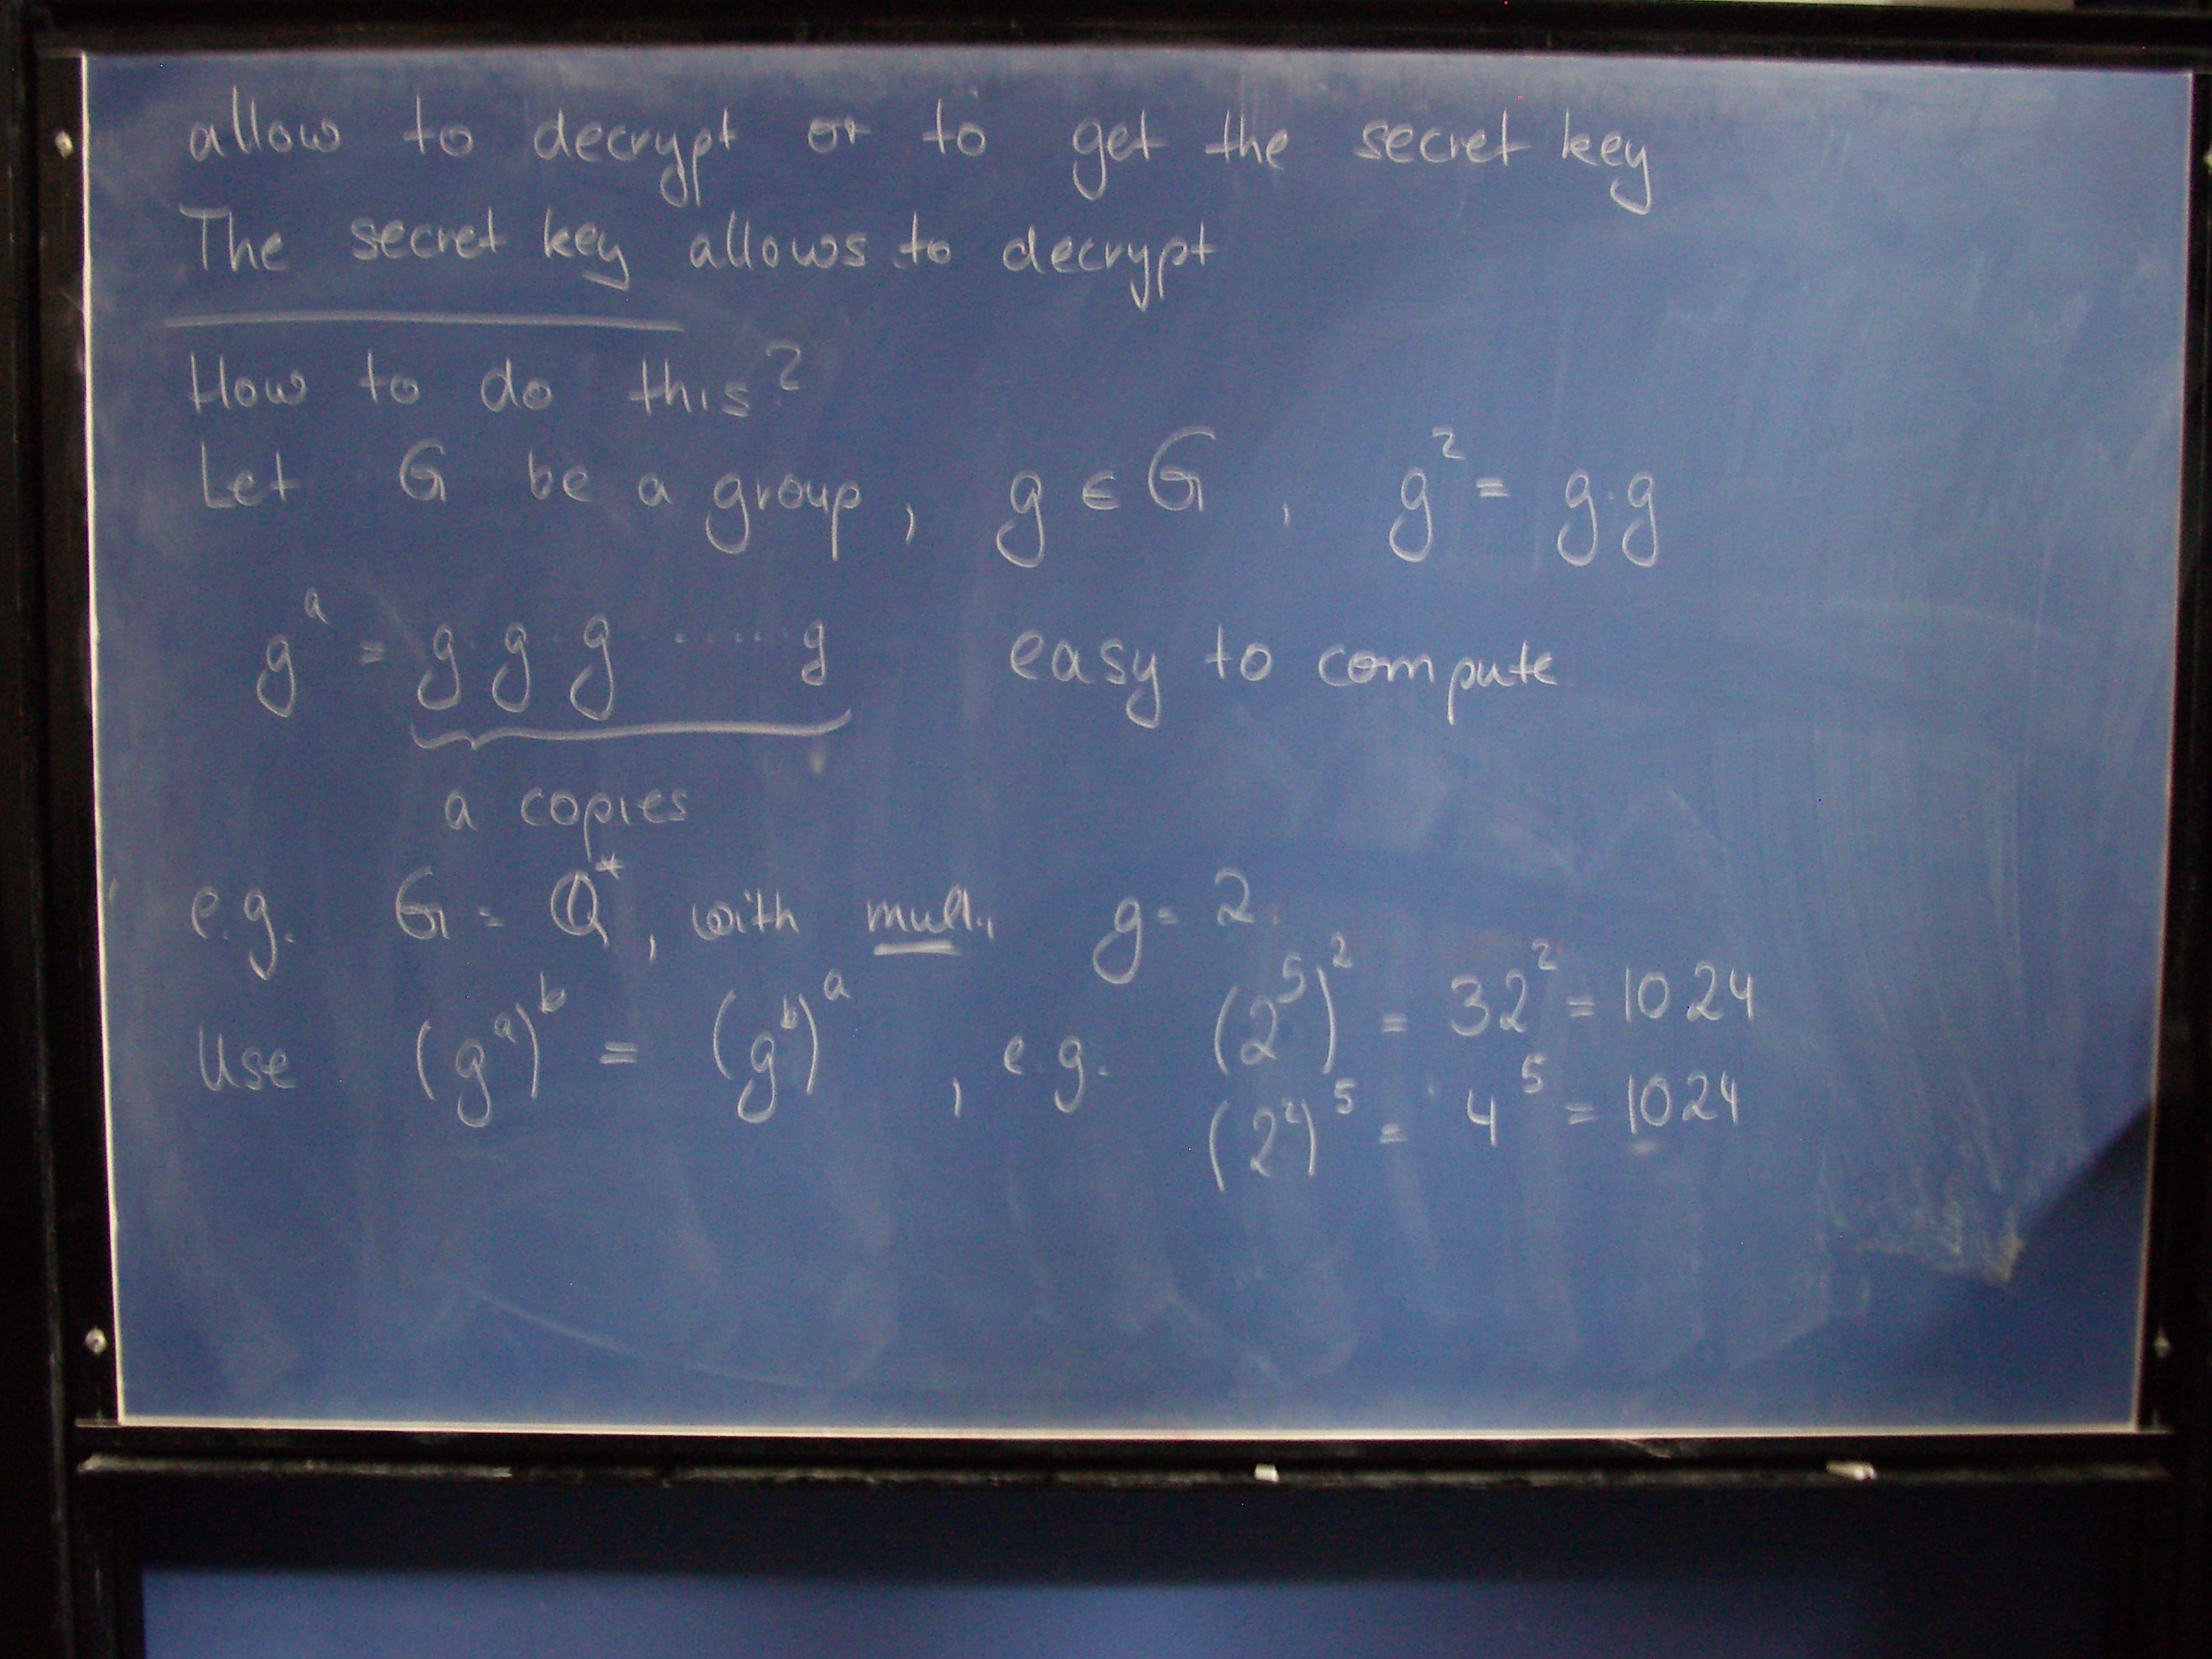 allow to decrypt or to get the secret key
The secret key allows to decrypt
How to do this?
Let G be a group, g ∈ G, g² = g·g
gᵃ = g·g·g ······ g easy to compute
a copies
e.g. G = Q*, with mult., g = 2.
Use (gᵃ)ᵇ = (gᵇ)ᵃ, e.g. (2⁵)² = 32² = 1024
(2²)⁵ = 4⁵ = 1024